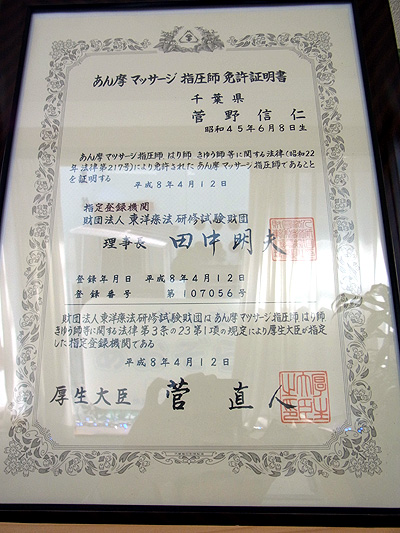 あん摩マッサージ指圧師免許証明書
千葉県
菅野信仁
昭和45年6月8日生
あん摩マッサージ指圧師 はり師 きゅう師等に関する法律(昭和22
年法律第217号)により免許された あん摩マッサージ指圧師であること
を証明する
平成8年4月12日
指定登録機関
財団法人 東洋療法研修試験財団
理事長 田中明夫
登録年月日 平成8年4月12日
登録番号 第107056号
財団法人東洋療法研修試験財団はあん摩マッサージ指圧師 はり師
きゅう師等に関する法律第3条の23第1項の規定により厚生大臣が指定
した指定登録機関である
平成8年4月12日
厚生大臣 菅直人
厚生大臣之印